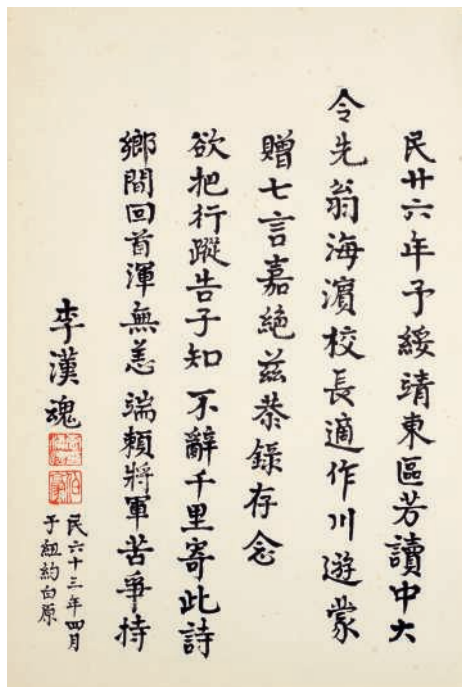 民廿六年予綏靖東區芳讀中大
令先翁海濱校長適作川遊蒙
贈七言嘉絕茲恭錄存念
欲把行蹤告子知 不辭千里寄此詩
鄉間回首渾無恙 端賴將軍苦爭持
李漢魂
民六十三年四月
于紐約白原